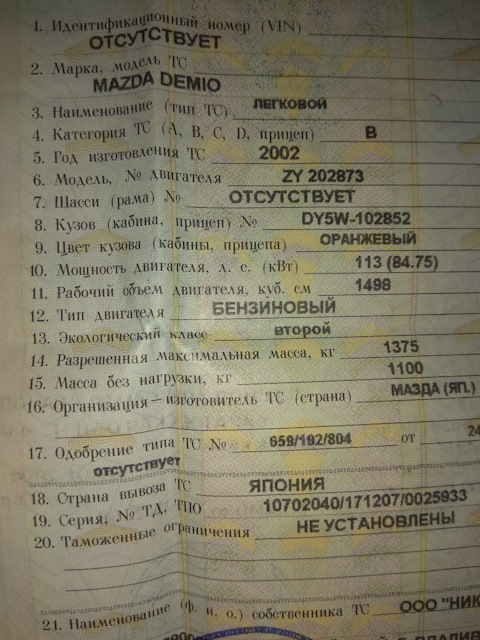 1. Идентификационный номер (VIN)
ОТСУТСТВУЕТ
2. Марка, модель ТС
MAZDA DEMIO
3. Наименование (тип ТС) ЛЕГКОВОЙ
4. Категория ТС (А, В, С, D, прицеп) В
5. Год изготовления ТС 2002
6. Модель, № двигателя ZY 202873
7. Шасси (рама) № ОТСУТСТВУЕТ
8. Кузов (кабина, прицеп) № DY5W-102852
9. Цвет кузова (кабины, прицепа) ОРАНЖЕВЫЙ
10. Мощность двигателя, л. с. (кВт) 113 (84.75)
11. Рабочий объем двигателя, куб. см 1498
12. Тип двигателя БЕНЗИНОВЫЙ
13. Экологический класс второй
14. Разрешенная максимальная масса, кг 1375
15. Масса без нагрузки, кг 1100
16. Организация—изготовитель ТС (страна) МАЗДА (ЯП.)
17. Одобрение типа ТС № 659/192/804 от 24
отсутствует
18. Страна вывоза ТС ЯПОНИЯ
19. Серия, № ТД, ТПО 10702040/171207/0025933
20. Таможенные ограничения НЕ УСТАНОВЛЕНЫ
21. Наименование (ф. и. о.) собственника ТС ООО "НИК